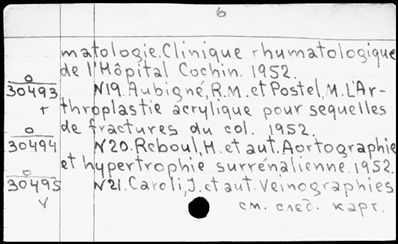 б
matologie. Clinique rhumatologique
de l'Hôpital Cochin. 1952.
0
30493
т
N19. Aubigné, R.M. et Postel, M. L'Ar-
throplastie acrylique pour sequelles
de fractures du col. 1952.
0
30494
N20. Reboul, H. et aut. Aortographie
et hypertrophie surrénalienne. 1952.
0
30495
v
N21. Caroli, J. et aut. Veinographies
см. след. карт.